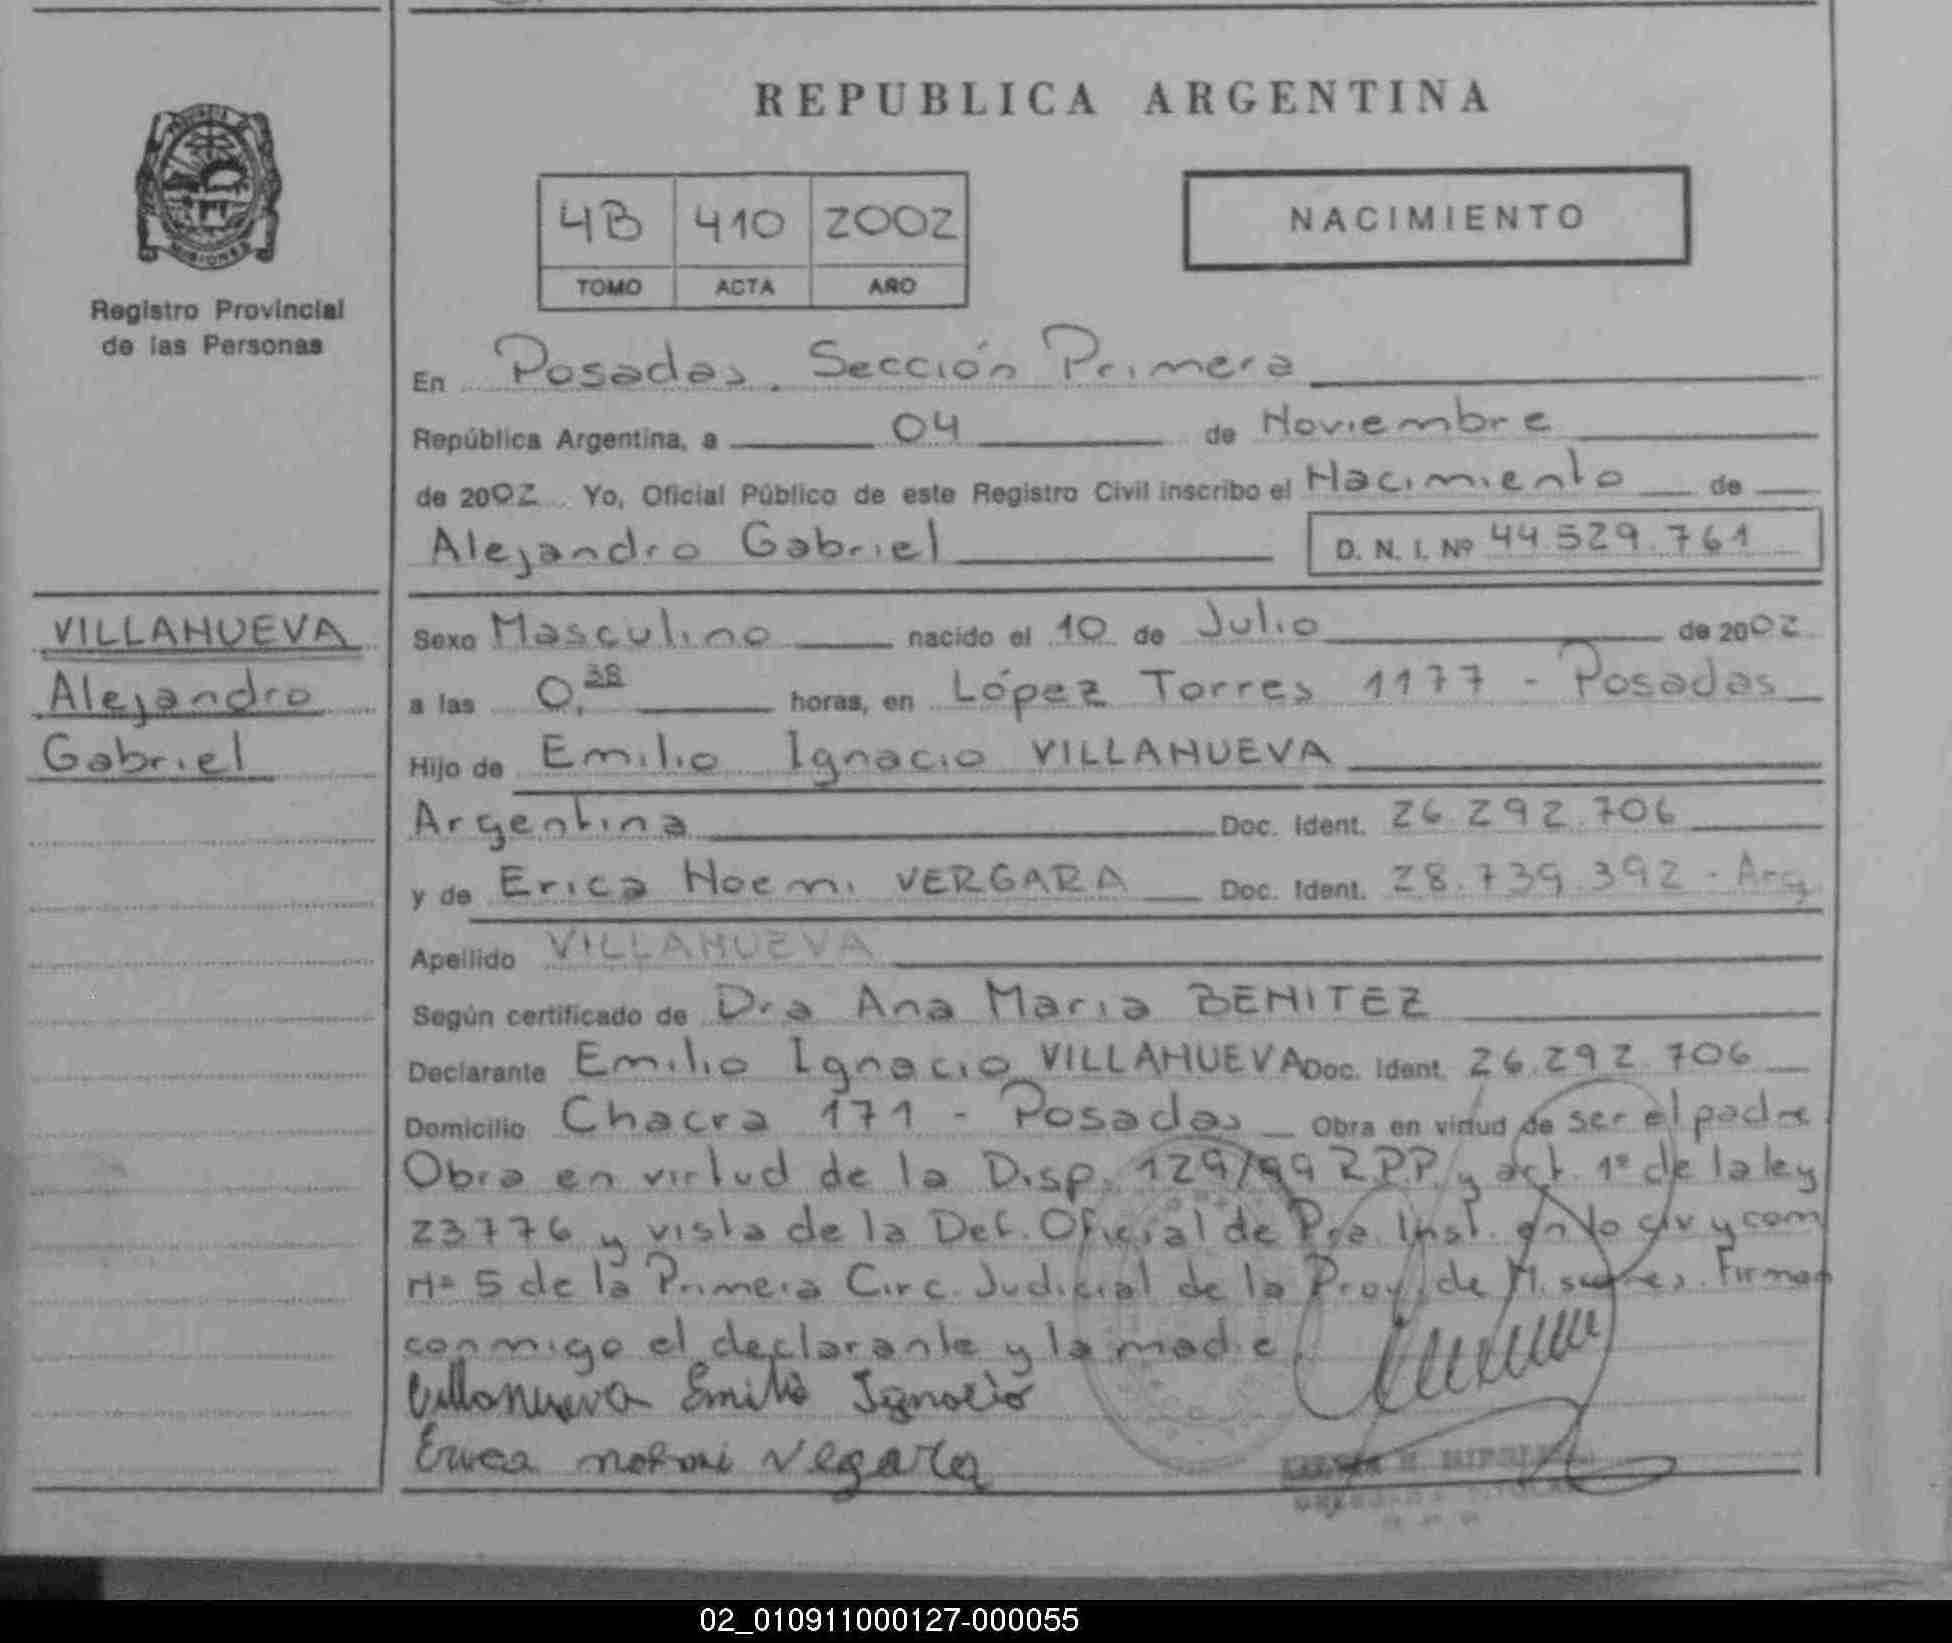 REPUBLICA ARGENTINA
MISIONES
Registro Provincial
de las Personas
4B 410 2002
TOMO ACTA AÑO
NACIMIENTO
En Posadas. Sección Primera
República Argentina, a 04 de Noviembre
de 2002 Yo, Oficial Público de este Registro Civil inscribo el Nacimiento de
Alejandro Gabriel D. N. I. Nº 44.529.761
VILLANUEVA
Alejandro
Gabriel
Sexo Masculino nacido el 10 de Julio de 2002
a las 0,38 horas, en López Torres 1177 - Posadas
Hijo de Emilio Ignacio VILLANUEVA
Argentina Doc. Ident. 26.292.706
y de Erica Noemi VERGARA Doc. Ident. 28.739.392 - Arg
Apellido VILLANUEVA
Según certificado de Dra Ana Maria BENITEZ
Declarante Emilio Ignacio VILLANUEVA Doc. Ident. 26.292.706
Domicilio Chacra 171 - Posadas Obra en virtud de ser el padre
Obra en virtud de la Disp. 129/99 R.P.P. y art. 1º de la ley
23776 y vista de la Def. Oficial de Pra. Inst. en lo civ y com
Nº 5 de la Primera Circ. Judicial de la Prov. de Misiones. Firman
conmigo el declarante y la madre
Villanueva Emilio Ignacio
Erica noemi vegara
02_010911000127-000055